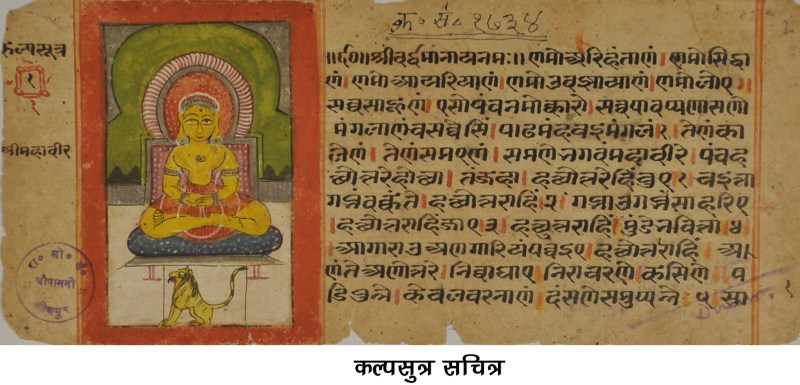 क्र॰ सं॰ १७३४
2
कल्पसूत्र
१
१
श्रीमहावीर
॥६०॥श्रीवर्द्धमानायनमः॥ णमोअरिहंताणं। णमोसिद्धा
णं। णमोआयरियाणं। णमोउवज्झायाणं। णमोलोए।
सव्वसाहूणं। एसोपंचनमोक्कारो। सव्वपावप्पणासणो
मंगलाणंचसव्वेसिं। पाढमंहवइमंगलं१। तेणंका
लेणं। तेणंसमएणं। समणेभगवंमहावीरे। पंचह
त्थोत्तरेहोत्था। तंजहा। हत्थोत्तराहिंचुए१। चइत्ता
गब्भंवक्कंते। हत्थोत्तराहिं२। गब्भाउगब्भंसाहरिए
।हत्थोत्तराहिंजाए३। हत्थुत्तराहिं। मुंडेभवित्ता४
आगाराउअणगारियंपव्वइए। हत्थोत्तराहिं। अ
णंतेअणोत्तरे। निव्वाघाए। निरावरणे। कसिणे। प
डिपुन्ने। केवलवरनाणं। दंसणेसमुप्पन्ने। ५। सा
१
चौपासनी
कल्पसुत्र सचित्र